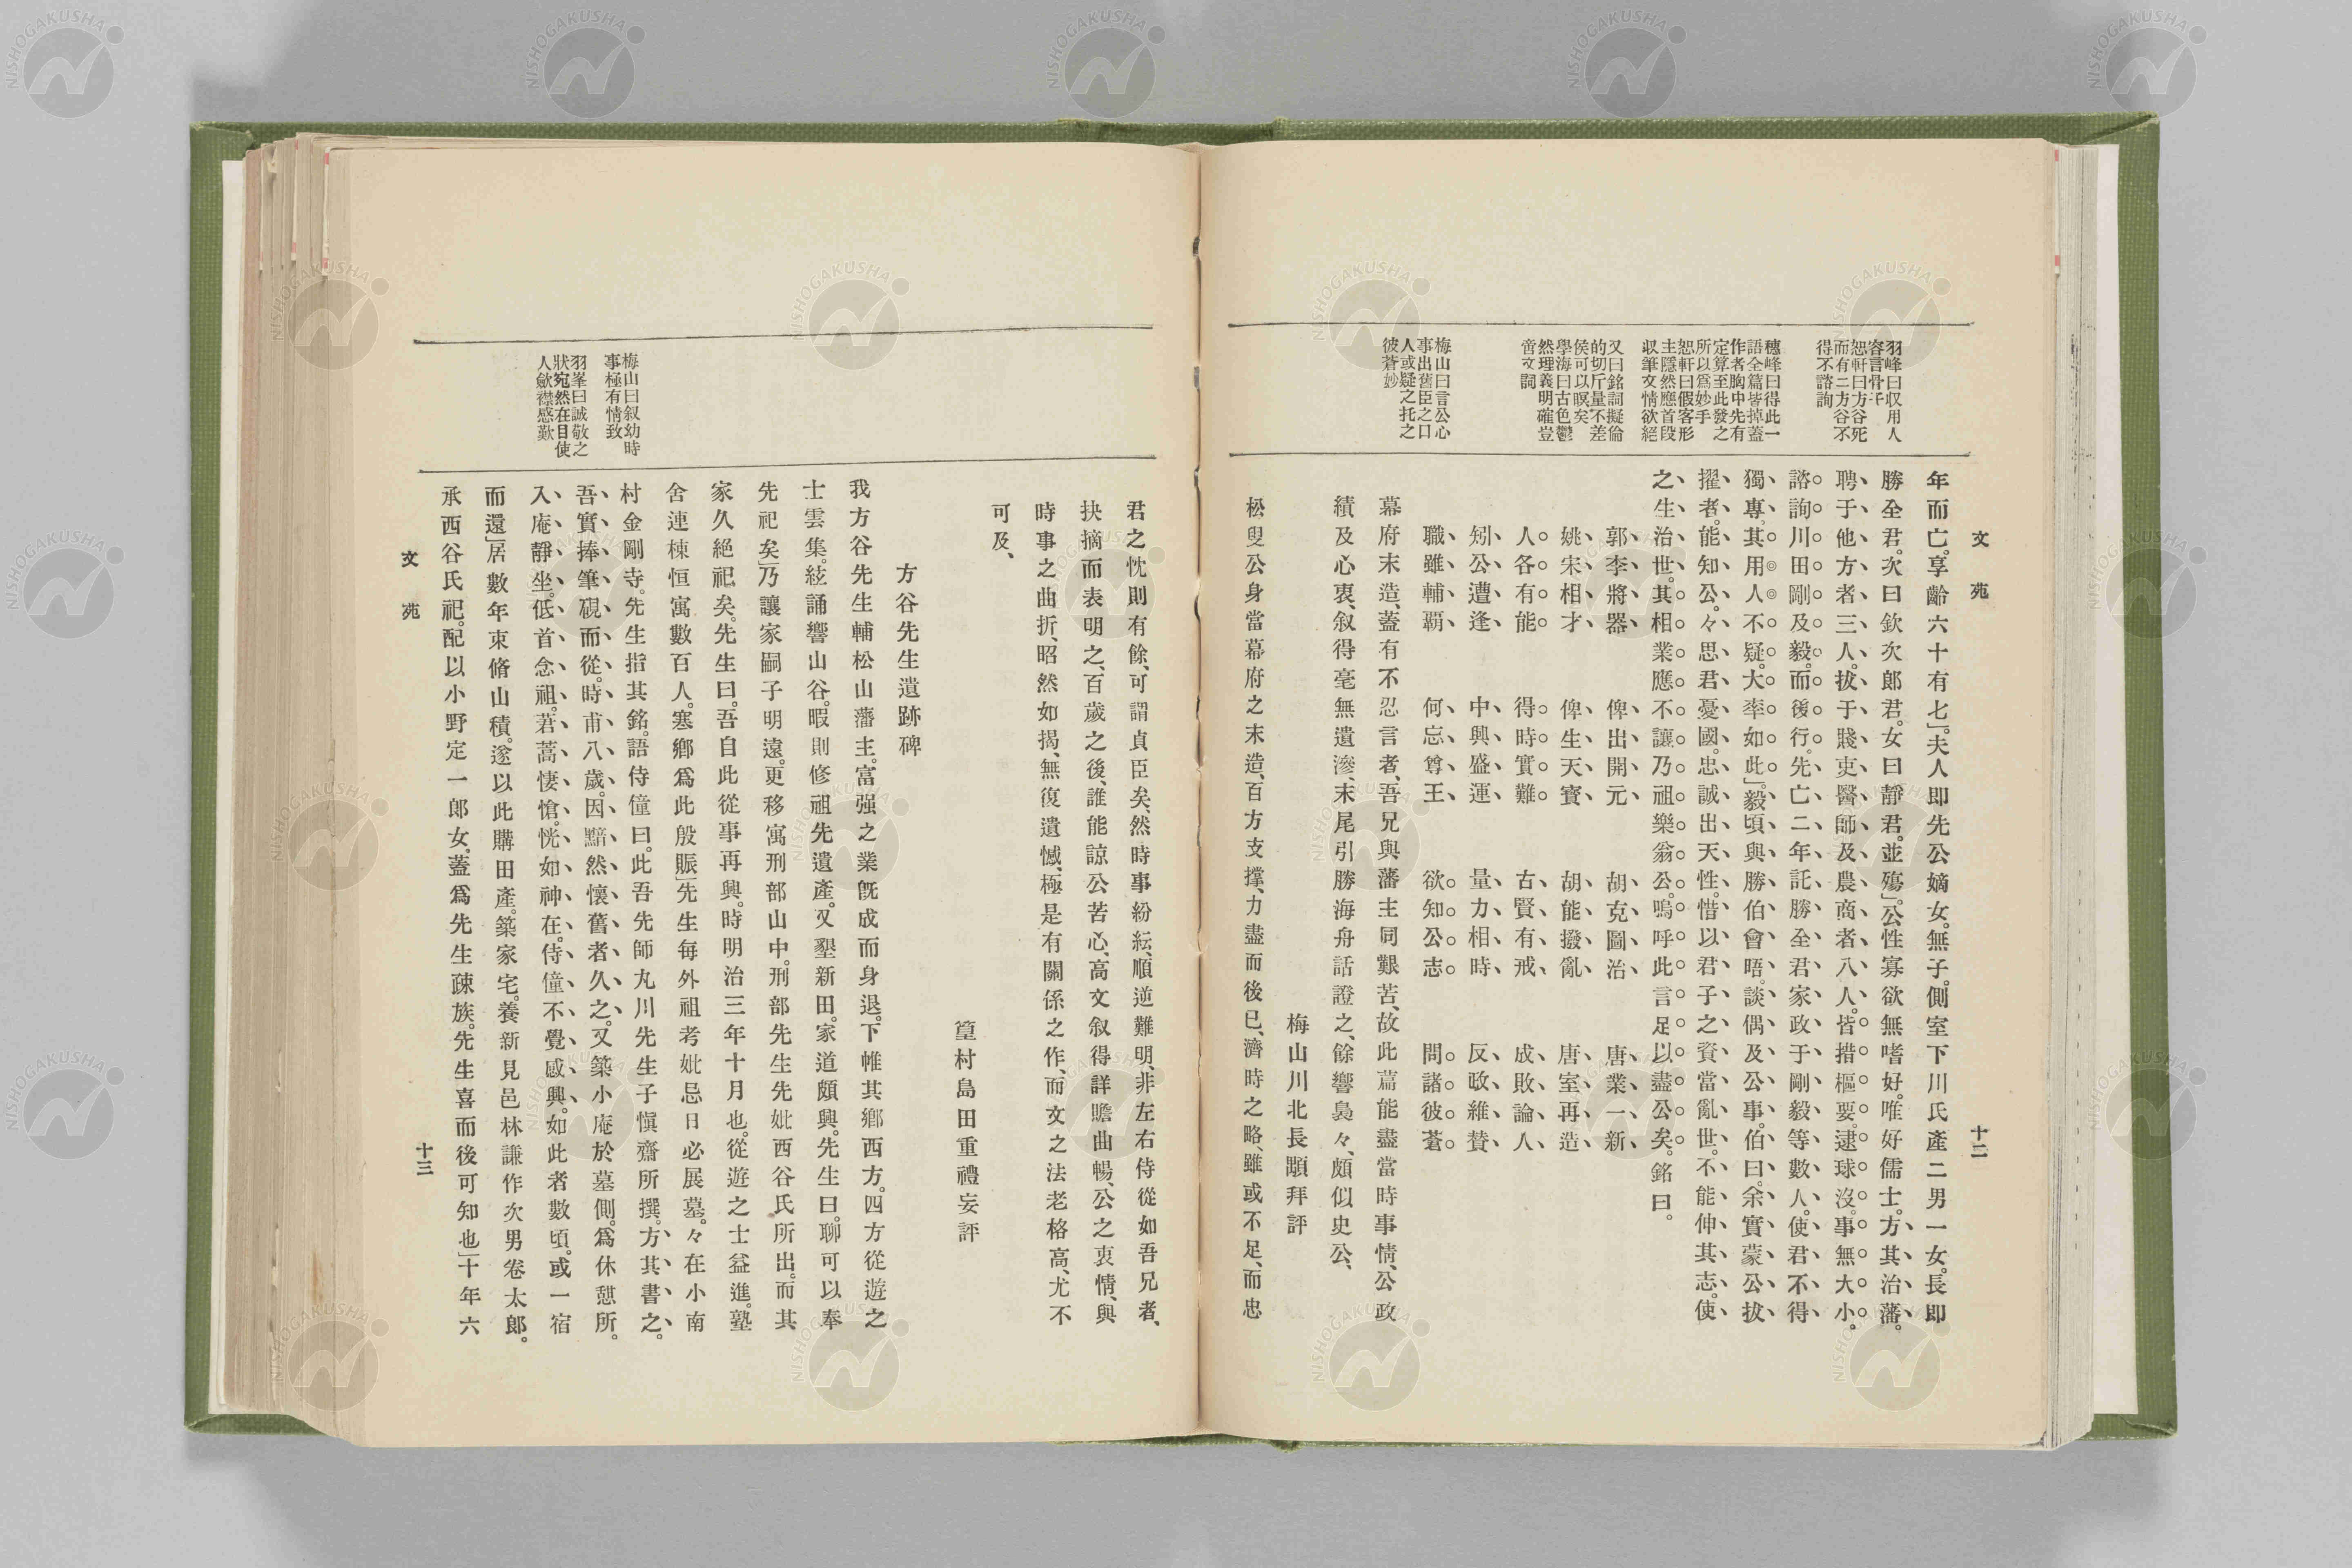 文苑
十二
羽峰曰収用人
容言骨子
恕軒曰方谷死
而有二方谷不
得不諮詢
穗峰曰得此一
語全篇皆掉蓋
作者胸中先有
定算至此發之
所以爲妙手
恕軒曰假客形
主隱然應首段
収筆文情欲絕
又曰銘詞擬倫
的切斤量不差
侯可以瞑矣
學海曰古色鬱
然理義明確豈
啻文詞
梅山曰言公心
事出舊臣之口
人或疑之托之
彼蒼妙
年而亡。享齡六十有七」夫人即先公嫡女。無子。側室下川氏產二男一女。長即
勝全君。次曰欽次郎君。女曰靜君。並殤」公性寡欲無嗜好。唯好儒士。方其治藩。
聘于他方者三人。拔于賤吏醫師及農商者八人。皆措樞要。逮球沒。事無大小。
諮詢川田剛及毅。而後行。先亡二年、託勝全君家政于剛毅等數人。使君不得
獨專。其用人不疑。大率如此」毅頃與勝伯會晤。談偶及公事。伯曰。余實蒙公拔
擢者。能知公。々思君憂國。忠誠出天性。惜以君子之資當亂世。不能伸其志。使
之生治世。其相業應不讓乃祖樂翁公。嗚呼此言足以盡公矣。銘曰。
郭李將器 俾出開元 胡克圖治 唐業一新
姚宋相才 俾生天寶 胡能撥亂 唐室再造
人各有能 得時實難 古賢有戒 成敗論人
矧公遭逢 中興盛運 量力相時 反政維贊
職雖輔覇 何忘尊王 欲知公志 問諸彼蒼
幕府末造、蓋有不忍言者、吾兄與藩主同艱苦、故此篇能盡當時事情、公政
績及心衷、叙得毫無遺滲、末尾引勝海舟話證之、餘響裊々、頗似史公、
梅山川北長顒拜評
松叟公身當幕府之末造、百方支撑、力盡而後已、濟時之略、雖或不足、而忠
君之忱則有餘、可謂貞臣矣、然時事紛紜、順逆難明、非左右侍從如吾兄者、
抉摘而表明之、百歲之後、誰能諒公苦心、高文叙得詳贍曲暢、公之衷情、與
時事之曲折、昭然如揭、無復遺憾、極是有關係之作、而文之法老格高、尤不
可及、
篁村島田重禮妄評
方谷先生遺跡碑
我方谷先生輔松山藩主。富强之業旣成而身退。下帷其鄉西方。四方從遊之
士雲集。絃誦響山谷。暇則修祖先遺產。又墾新田。家道頗興。先生曰。聊可以奉
先祀矣」乃讓家嗣子明遠。更移寓刑部山中。刑部先生先妣西谷氏所出。而其
家久絕祀矣。先生曰。吾自此從事再興。時明治三年十月也。從遊之士益進。塾
舍連棟恒寓數百人。寒鄉爲此殷賑」先生每外祖考妣忌日必展墓。々在小南
村金剛寺。先生指其銘。語侍僮曰。此吾先師丸川先生子愼齋所撰。方其書之。
吾實捧筆硯而從。時甫八歲。因黯然懷舊者久之。又築小庵於墓側。爲休憇所。
入庵靜坐。低首念祖。焄蒿悽愴。恍如神在。侍僮不覺感興。如此者數頃。或一宿
而還」居數年束脩山積。遂以此購田產。築家宅。養新見邑林謙作次男卷太郎。
承西谷氏祀。配以小野定一郎女。蓋爲先生疎族。先生喜而後可知也」十年六
梅山曰叙幼時
事極有情致
羽峯曰誠敬之
狀宛然在目使
人歛襟感歎
文苑
十三